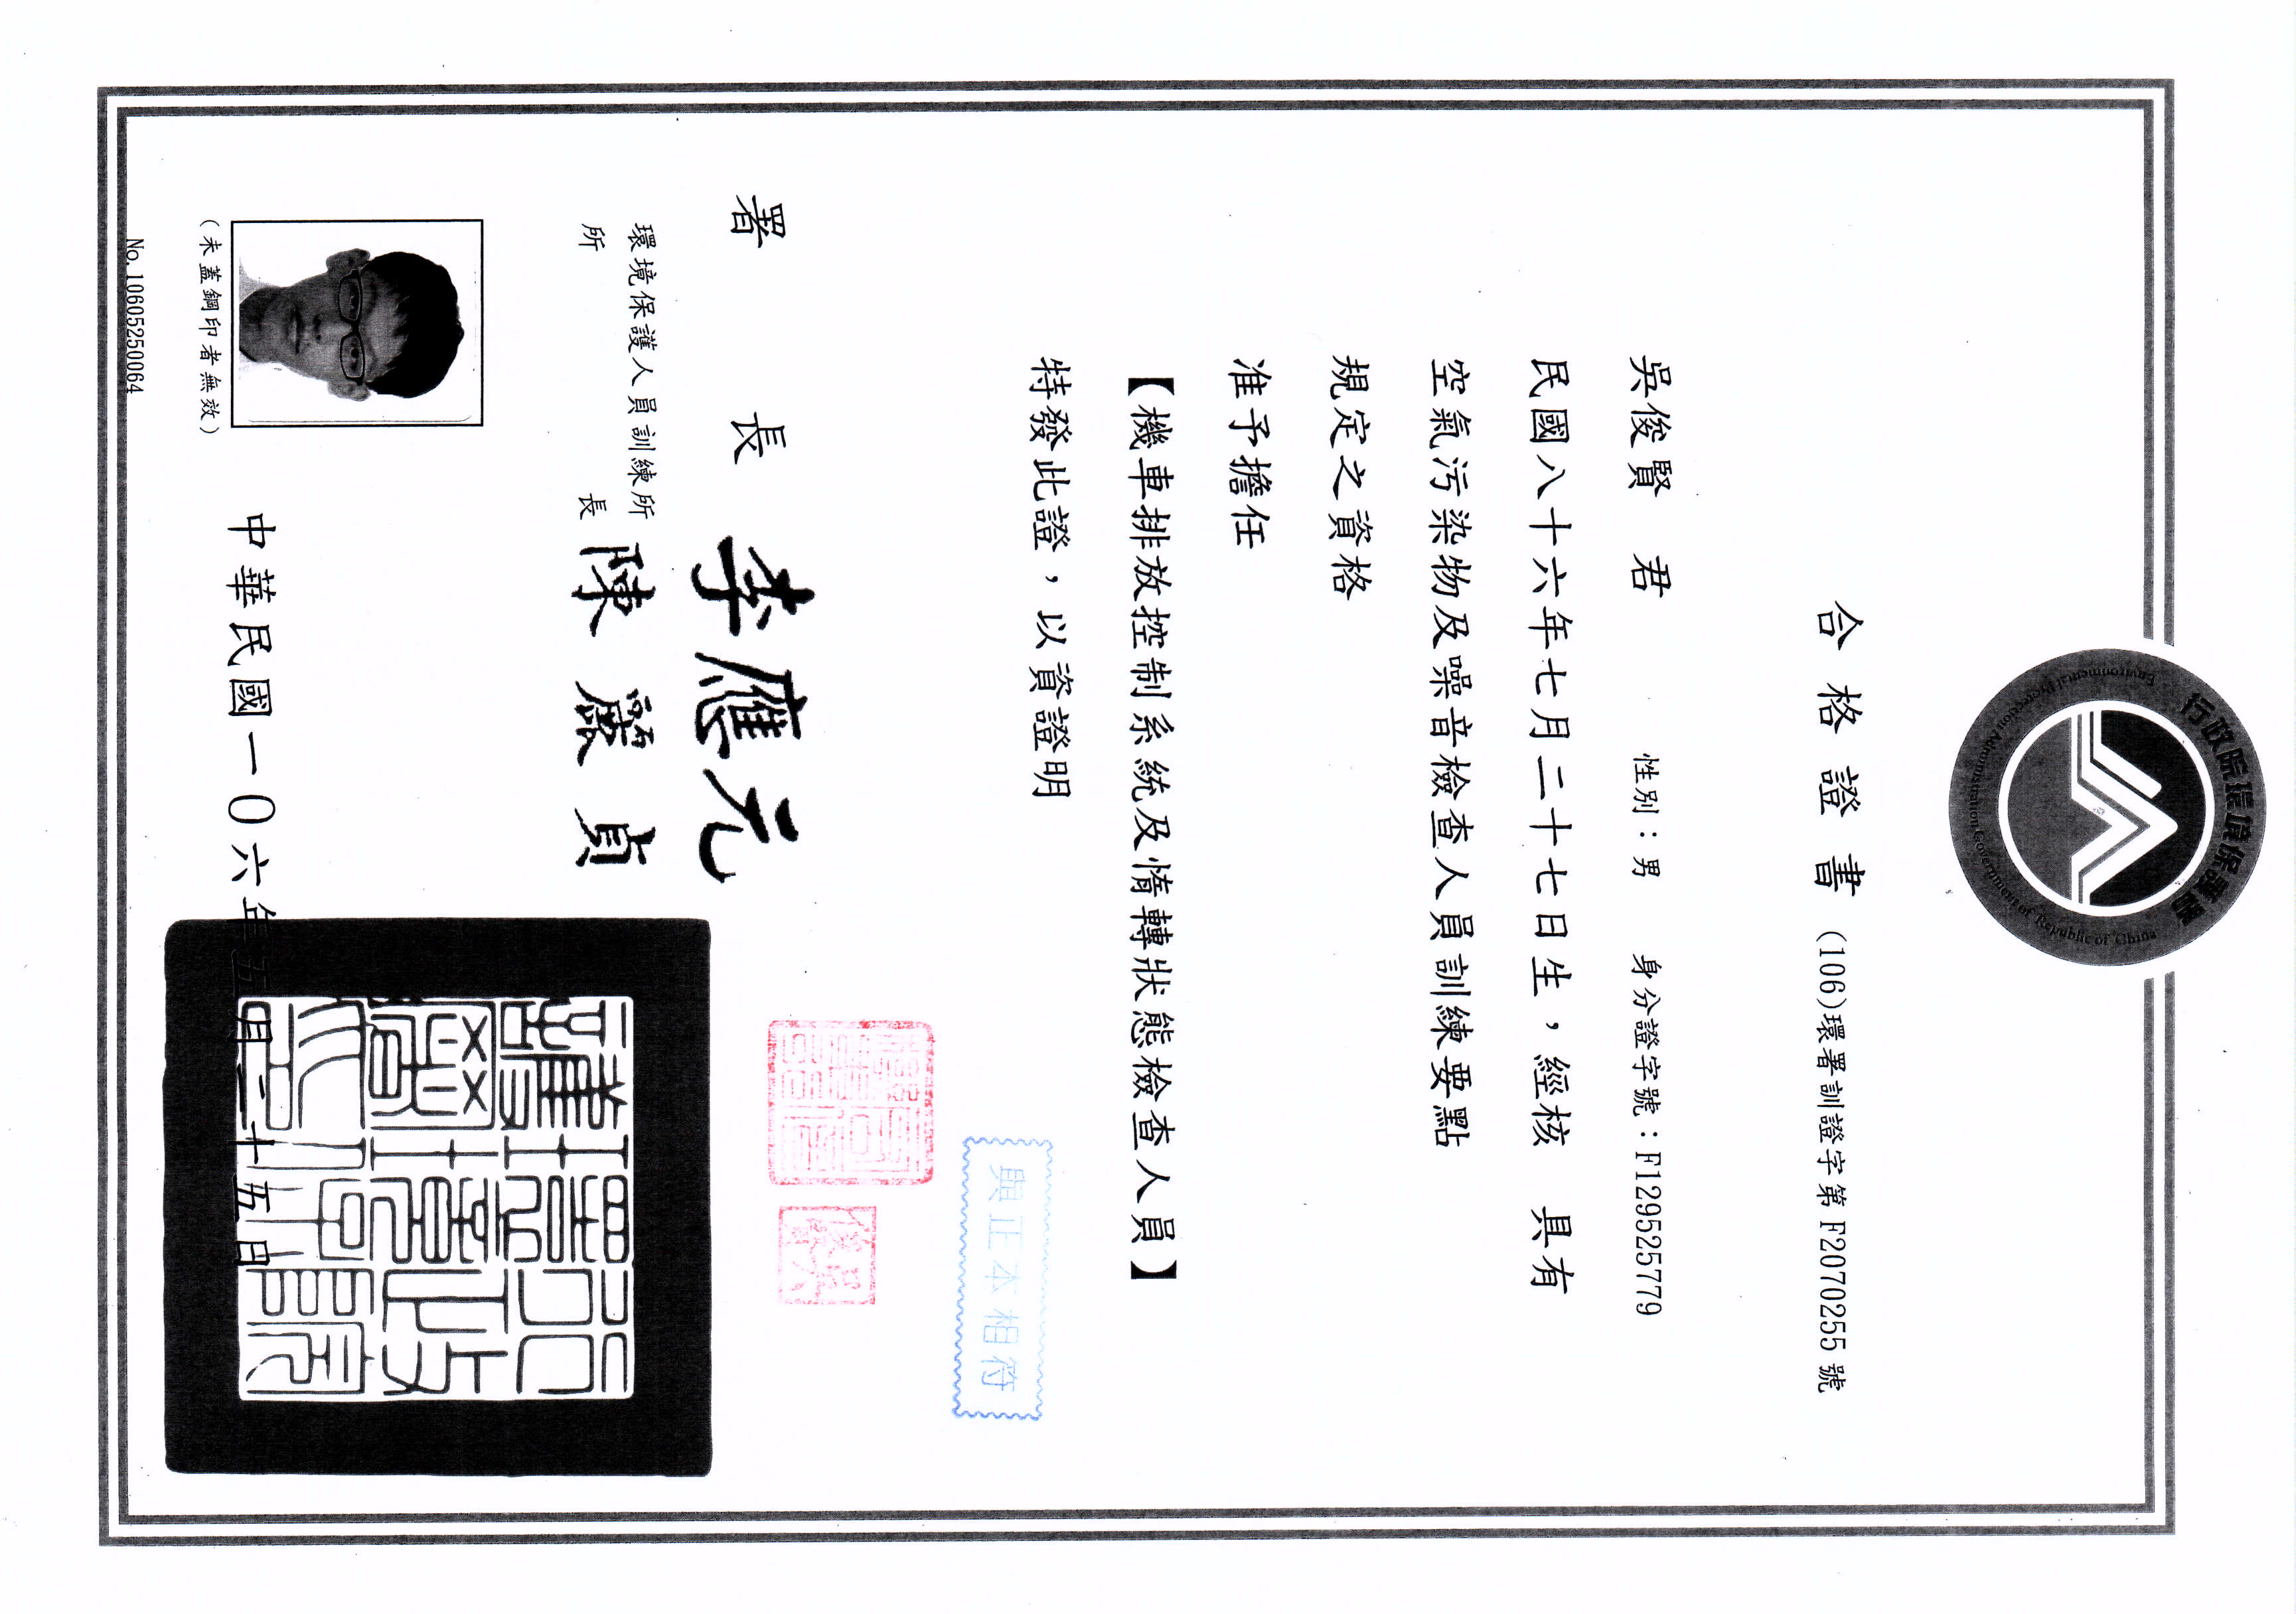 行政院環境保護署
Environmental Protection Administration Government of Republic of China
合格證書 (106)環署訓證字第 F2070255 號
吳俊賢 君 性別：男 身分證字號：F129525779
民國八十六年七月二十七日生，經核 具有
空氣污染物及噪音檢查人員訓練要點
規定之資格
准予擔任
【機車排放控制系統及惰轉狀態檢查人員】
特發此證，以資證明
與正本相符
署長 李應元
環境保護人員訓練所
所長 陳麗貞
(未蓋鋼印者無效)
中華民國一０六年五月二十五日
No.10605250064